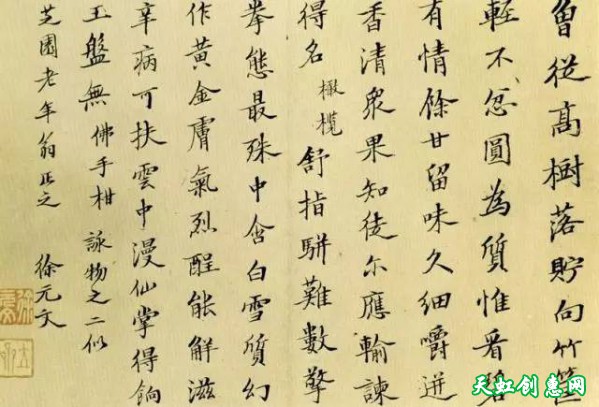 曾從高樹落貯向竹筐
輕不忍圓為質惟看碧
有情餘甘留味久細嚼迸
香清衆果知徒尔應輸諫
得名 橄欖 舒指駢難數擎
拳態最殊中含白雪質幻
作黃金膚氣烈酲能解滋
辛病可扶雲中漫仙掌得餉
玉盤無 佛手柑 詠物之二似
芝園老年翁正之 徐元文
天虹创惠网